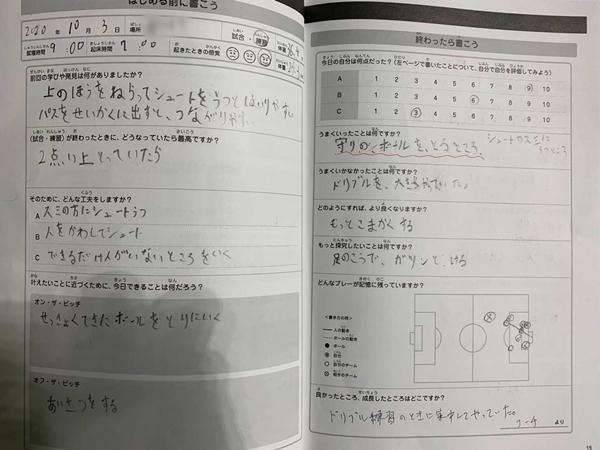 はじめる前に書こう
2020年10月3日 場所
試合・練習
就寝時間 9:00 起床時間 7:00 起きたときの感覚
体重
前回の学びや発見は何がありましたか?
上のほうをねらってシュートをうつとはいりやすい
パスをせいかくに出すと、つながりやすい
(試合・練習)が終わったときに、どうなっていたら最高ですか?
2点い上とっていたら
そのために、どんな工夫をしますか?
A スミの方にシュートうつ
B 人をかわしてシュート
C できるだけ人がいないところをいく
叶えたいことに近づくために、今日できることは何だろう?
オン・ザ・ピッチ
せっきょくてきにボールをとりにいく
オフ・ザ・ピッチ
あいさつをする
終わったら書こう
今日の自分は何点だった?(左ページで書いたことについて、自分で自分を評価してみよう)
A 1 2 3 4 5 6 7 8 9 10
B 1 2 3 4 5 6 7 8 9 10
C 1 2 3 4 5 6 7 8 9 10
うまくいったことは何ですか?
守りのボールを、とうところ
シュートがスミに
うつところ
うまくいかなかったことは何ですか?
ドリブルを、大きく
どのようにすれば、より良くなりますか?
もっとこまかくする
もっと探究したいことは何ですか?
足のこうで、ガツンと、ける
どんなプレーが記憶に残っていますか?
<書き方の例>
人の動き
ボールの動き
ボール
自分
自分のチーム
相手のチーム
良かったところ、成長したところはどこですか?
ドリブル練習のときに集中してやっていた。
コーチ より
15